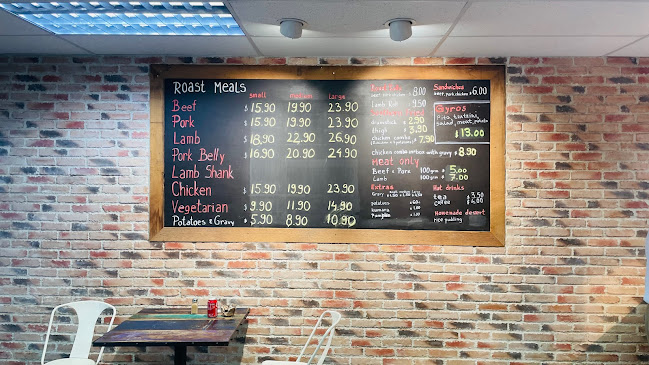 Roast Meals
small medium large
Beef $ 15.90 19.90 23.90
Pork $ 15.90 19.90 23.90
Lamb $ 18.90 22.90 26.90
Pork Belly $ 16.90 20.90 24.90
Lamb Shank
Chicken $ 15.90 19.90 23.90
Vegetarian $ 9.90 11.90 14.90
Potatoes & Gravy $ 5.90 8.90 10.90
beef, pork, chicken $ 8.00
Lamb Roll $ 9.50
drumstick $ 2.90
thigh $ 3.90
chicken combo $ 7.90
chicken combo with gravy $ 8.90
Meat only
Beef & Pork 100gm $ 5.00
Lamb 100gm $ 7.00
Extras
Gravy
potatoes
kumara
Pumpkin
Sandwiches
beef, pork, chicken $ 6.00
Gyros
Pita, tzatziki,
salad, meat, potato
$ 13.00
Hot drinks
tea 3.50
coffee $ 4.00
Homemade dessert
rice pudding